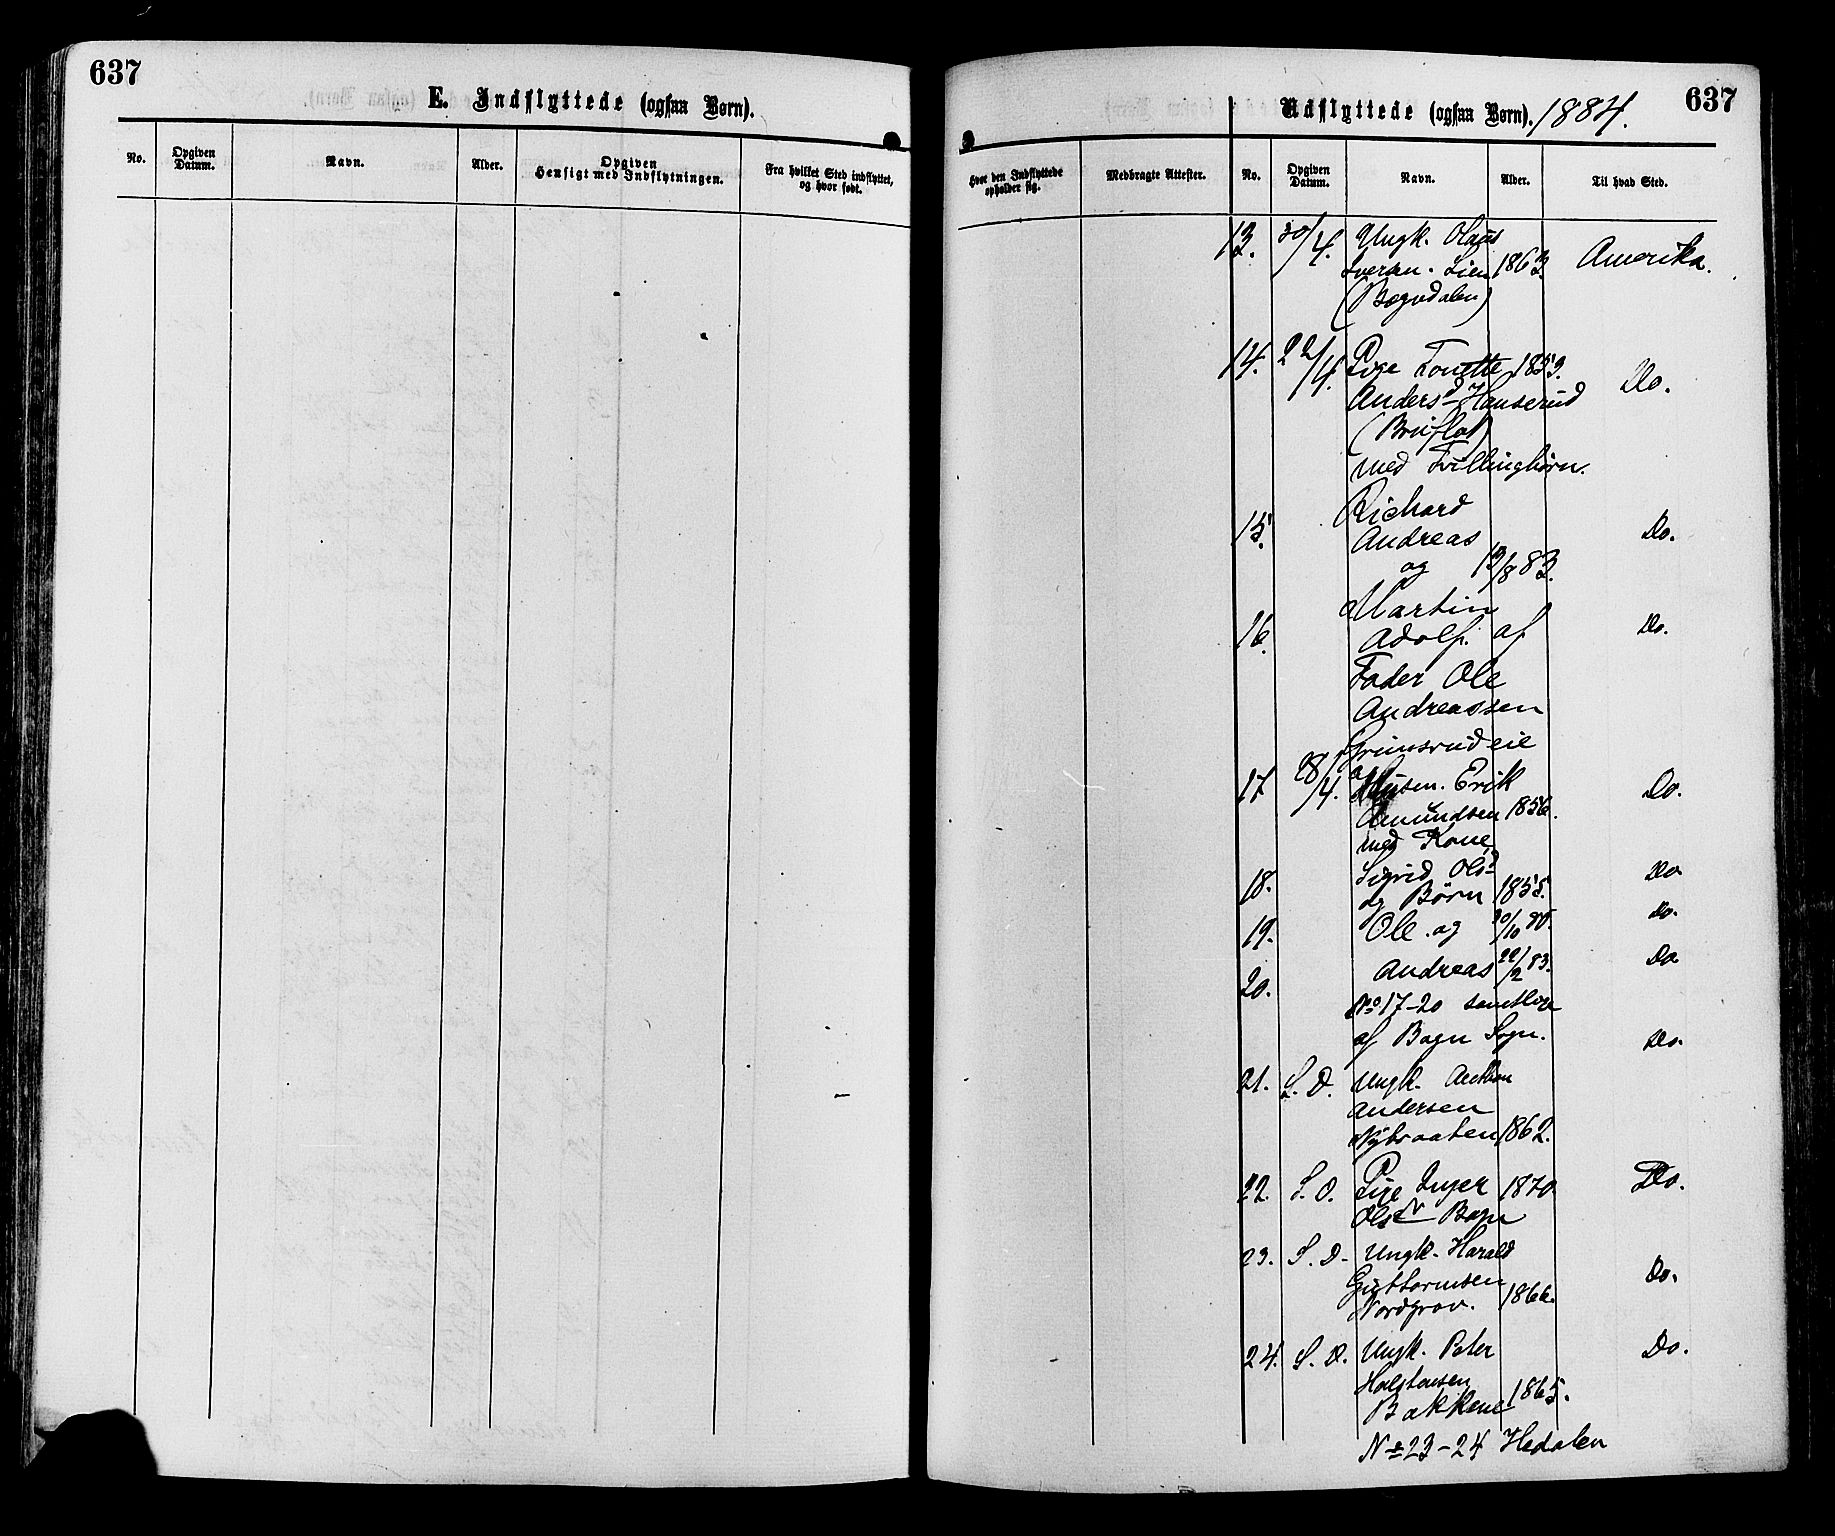 637
E. Indflyttede (ogsaa Børn).
No.
Opgiven Datum.
Navn.
Alder.
Opgiven Hensigt med Indflytningen.
Fra hvilket Sted indflyttet, og hvor født.
637
Udflyttede (ogsaa Børn). 1884.
Hvor den Indflyttede opholder sig.
Medbragte Attester.
No.
Opgiven Datum.
Navn.
Alder.
Til hvad Sted.
13. 20/4. Ungk. Olaus
Iversen. Lien 1863. Amerika.
(Begndalen)
14. 22/4. Pige Tonette 1853.
Andersd Hanserud Do.
(Bruflat)
med Tvillingbørn.
Richard
15. Andreas Do.
og 13/8 83.
Martin
16. Adolf. af Do.
Fader Ole
Andreassen
Grimsrudeie
17 28/4. Husm. Erik Do.
Amundsen 1856.
med Kone
Sigrid Olsd Do
18. og Børn 1855.
19. Ole og /10 80. Do.
20. Andreas 22/2 83. Do
No 17-20 samtlige
af Bagn Sogn. Do.
21. S. D. Ungk.
Andersen
Nybraaten 1862.
22. S. D. Pige Inger 1870 Do.
Olsd Bagn
23. S. D. Ungk. Harald
Guttormsen Do.
Nordgrav. 1866.
24. S. D. Ungk. Peter Do.
Halstensen
Bakkene 1865.
No 23-24 Hedalen